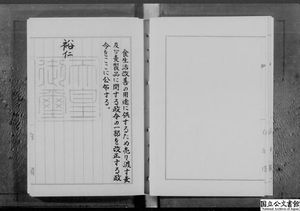 食生活改善の用途に供するため売り渡す麦
及び麦製品に関する政令の一部を改正する政
令をここに公布する。
裕仁
天皇
御璽
国立公文書館
National Archives of Japan